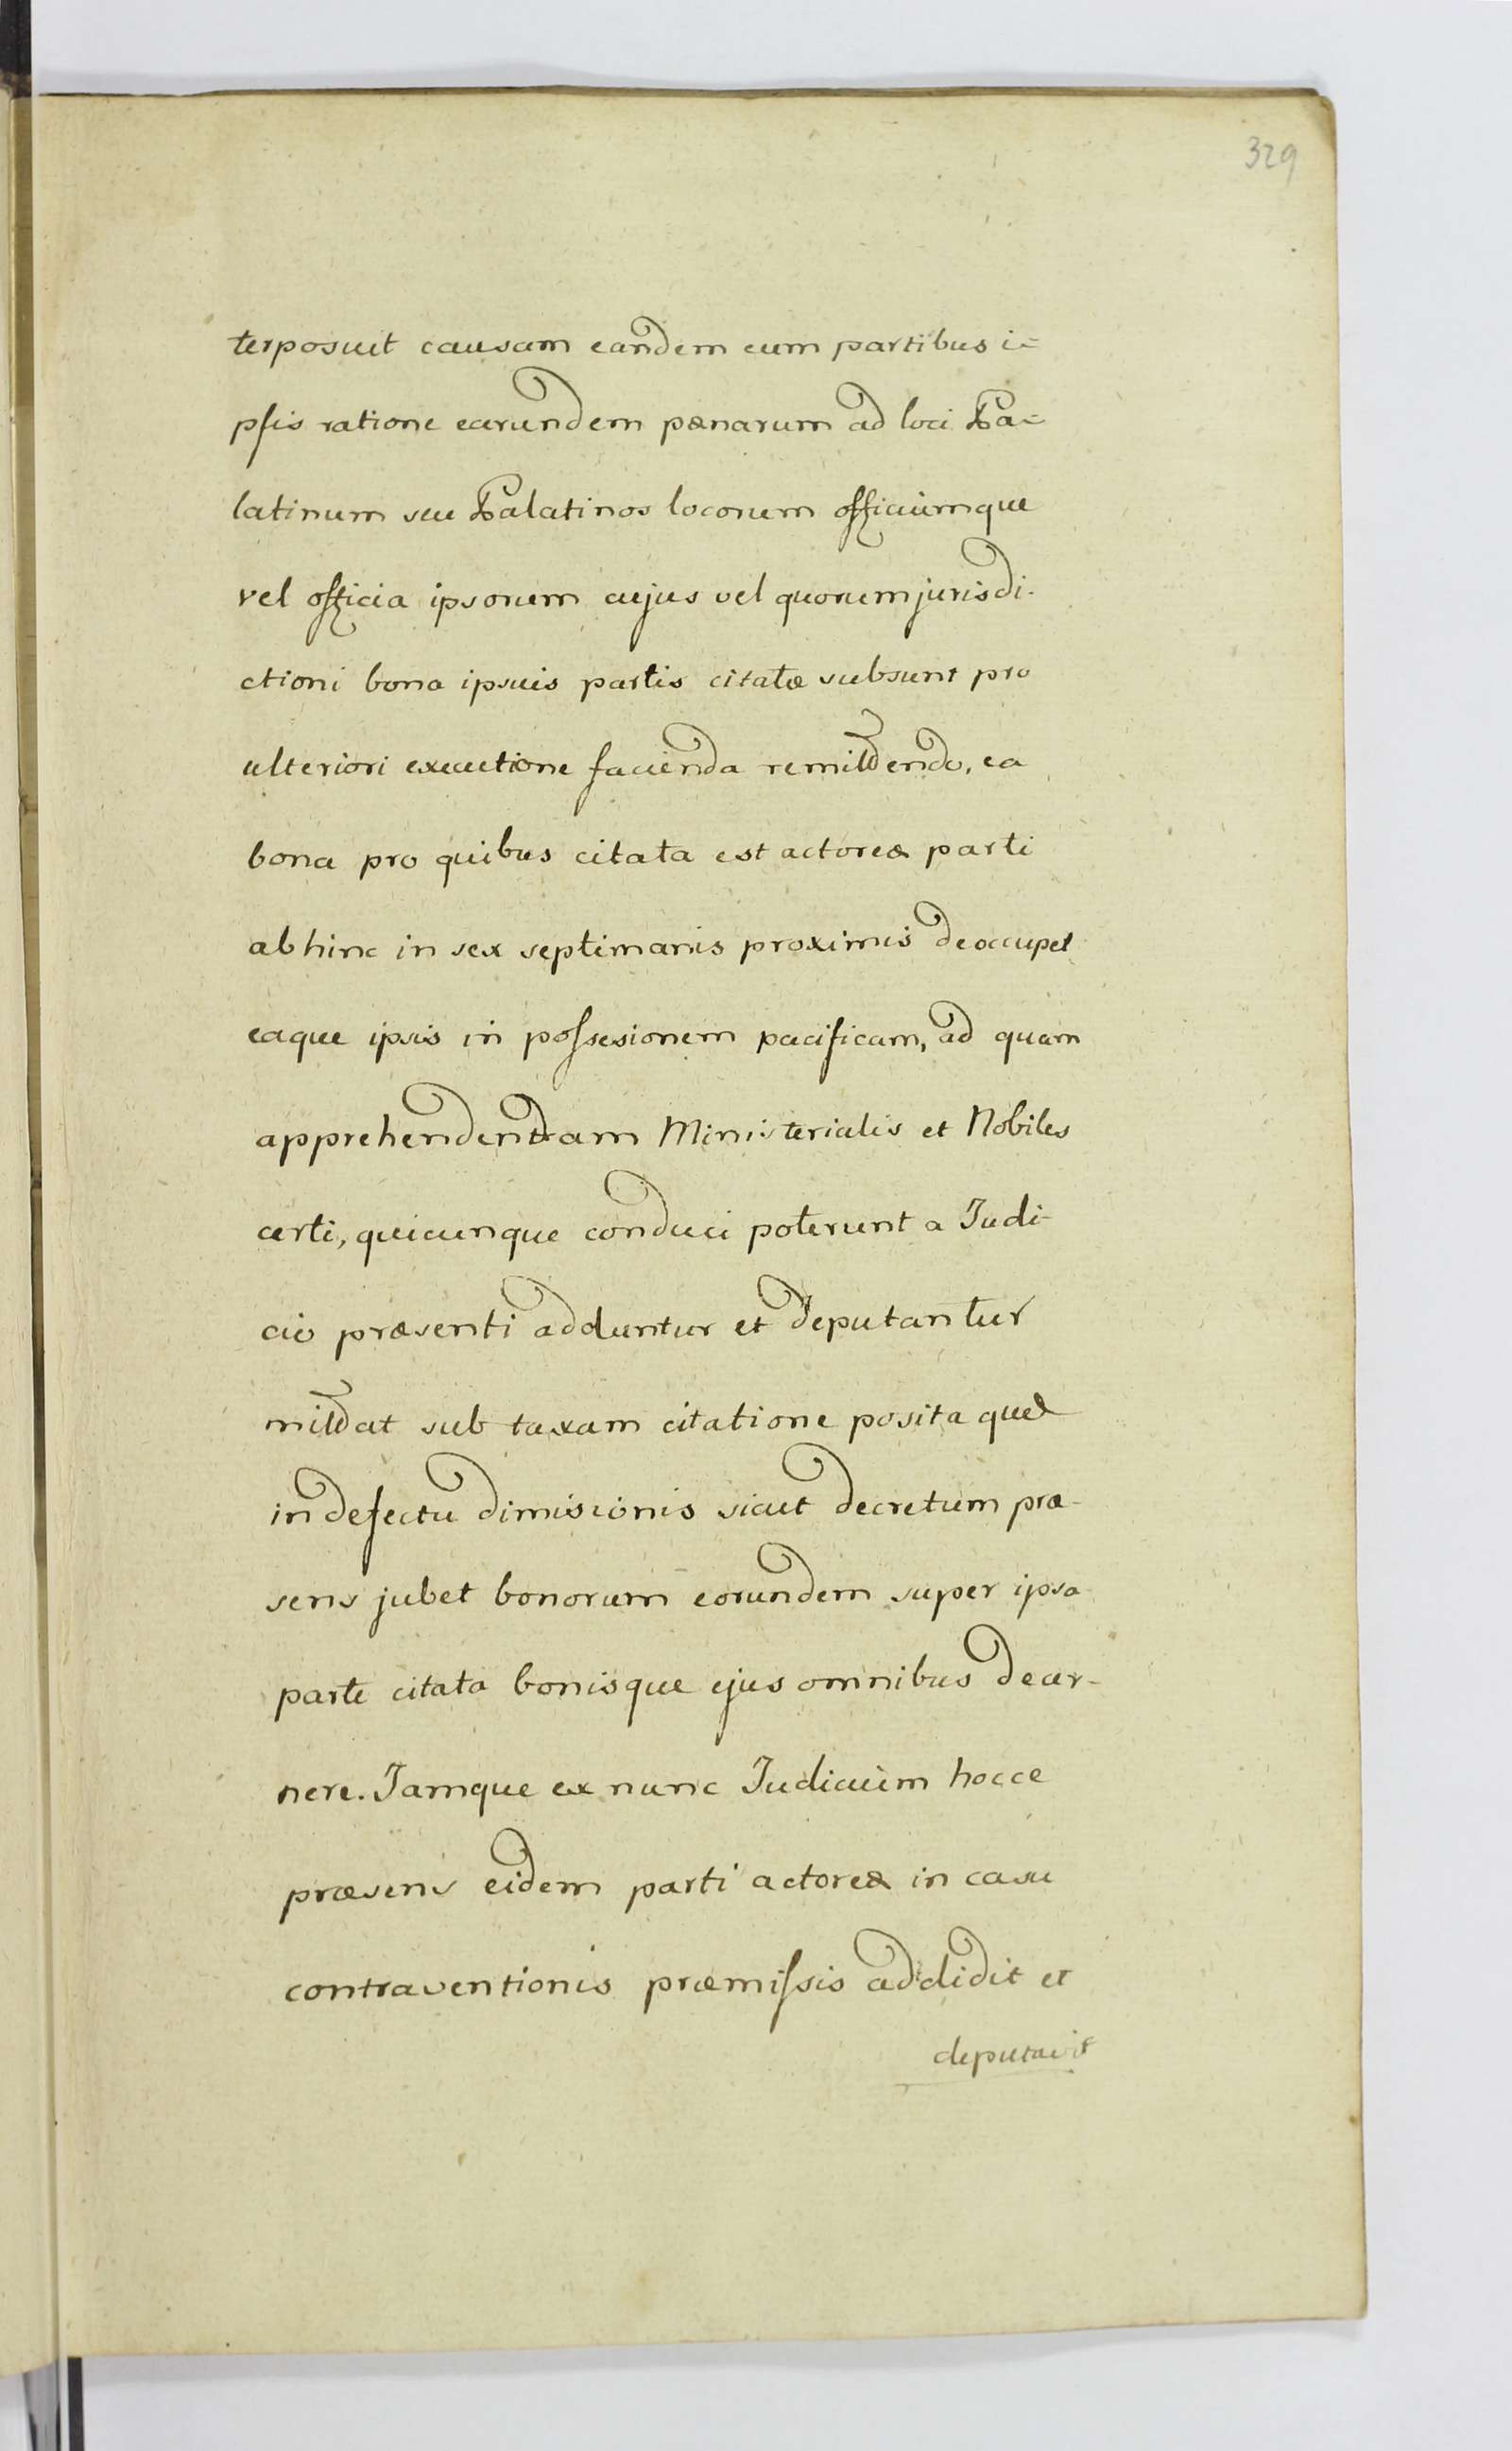 329
terposuit causam eandem cum partibus i=
psis ratione earundem pænarum ad loci Pa=
latinum seu Palatinos locorum officiumque
vel officia ipsorum cujus vel quorum jurisdi-
ctioni bona ipsius partis citatæ subsunt pro
ulteriori executione facienda remittendo, ea
bona pro quibus citata est actoreæ parti
ab hinc in sex septimanis proximis deoccupet
eaque ipsis in possesionem pacificam, ad quam
apprehendendam Ministerialis et Nobiles
certi, quicunque conduci poterunt a Judi-
cio præsenti adduntur et deputantur
mittat sub taxam citatione posita quæ
in defectu dimisionis sicut decretum præ-
sens jubet bonorum eorundem super ipsa
parte citata bonisque ejus omnibus decer-
nere. Jamque ex nunc Judicium hocce
præsens eidem parti actoreæ in casu
contraventionis præmissis addidit et
deputavit